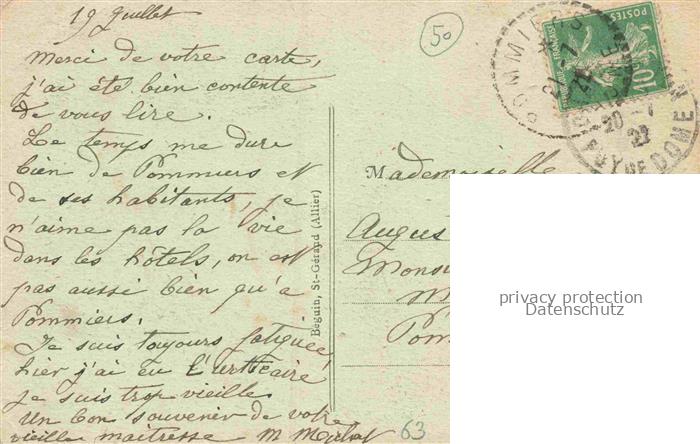 19 Juillet
50
Merci de votre carte,
j'ai été bien contente
de vous lire.
Le temps me dure
bien de Pommiers et
de ses habitants, je
n'aime pas la vie
dans les hôtels, on est
pas aussi bien qu'à
Pommiers.
Je suis toujours fatiguée
hier j'ai eu l'urticaire
je suis trop vieille.
Un bon souvenir de votre
vieille maitresse M
63
Béguin, St-Gérand (Allier)
POSTES
10
POMMIERS
21-7
20-7
22
PUY DE DOME
Mademoiselle
Augus
Monsi
M
Pom
privacy protection
Datenschutz